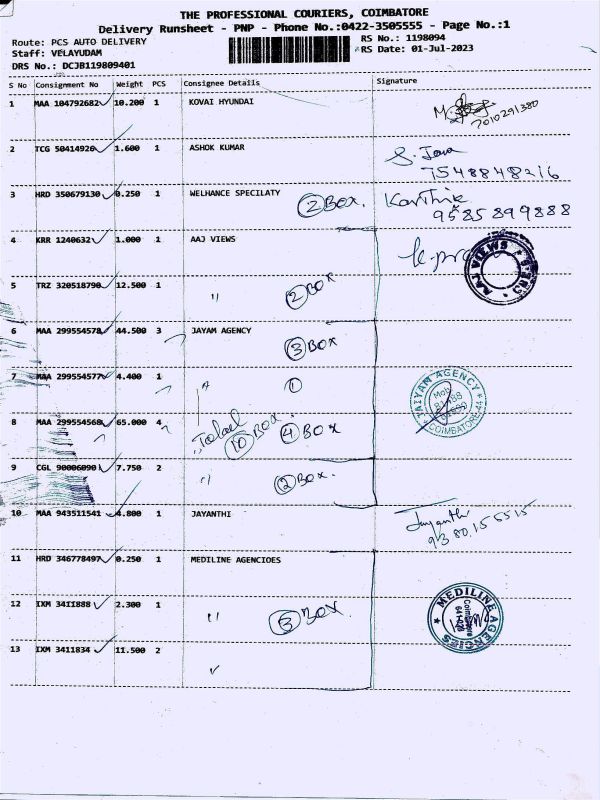 THE PROFESSIONAL COURIERS, COIMBATORE
Delivery Runsheet - PNP - Phone No.:0422-3505555 - Page No.:1
Route: PCS AUTO DELIVERY RS No.: 1198094
Staff: VELAYUDAM RS Date: 01-Jul-2023
DRS No.: DCJB119809401
S No Consignment No Weight PCS Consignee Details Signature
1 MAA 104792682 10.200 1 KOVAI HYUNDAI
7010291380
2 TCG 50414926 1.600 1 ASHOK KUMAR
7548848216
3 HRD 350679130 0.250 1 WELHANCE SPECILATY 2 BOX. Karthik
9585899888
4 KRR 1240632 1.000 1 AAJ VIEWS
AAJ VIEWS
5 TRZ 320518790 12.500 1 " 2 BOX
6 MAA 299554578 44.500 3 JAYAM AGENCY
3 BOX
7 MAA 299554577 4.400 1 " 1
JAIYAM AGENCY
COIMBATORE-44
8 MAA 299554568 65.000 4 10 BOX. 4 BOX
9 CGL 90006090 7.750 2 " 2 BOX.
10 MAA 943511541 4.800 1 JAYANTHI Jayanthi
9380155515
11 HRD 346778497 0.250 1 MEDILINE AGENCIOES
12 IXM 3411888 2.300 1 " 3 BOX
MEDILINE AGENCIES
Coimbatore
13 IXM 3411834 11.500 2 "